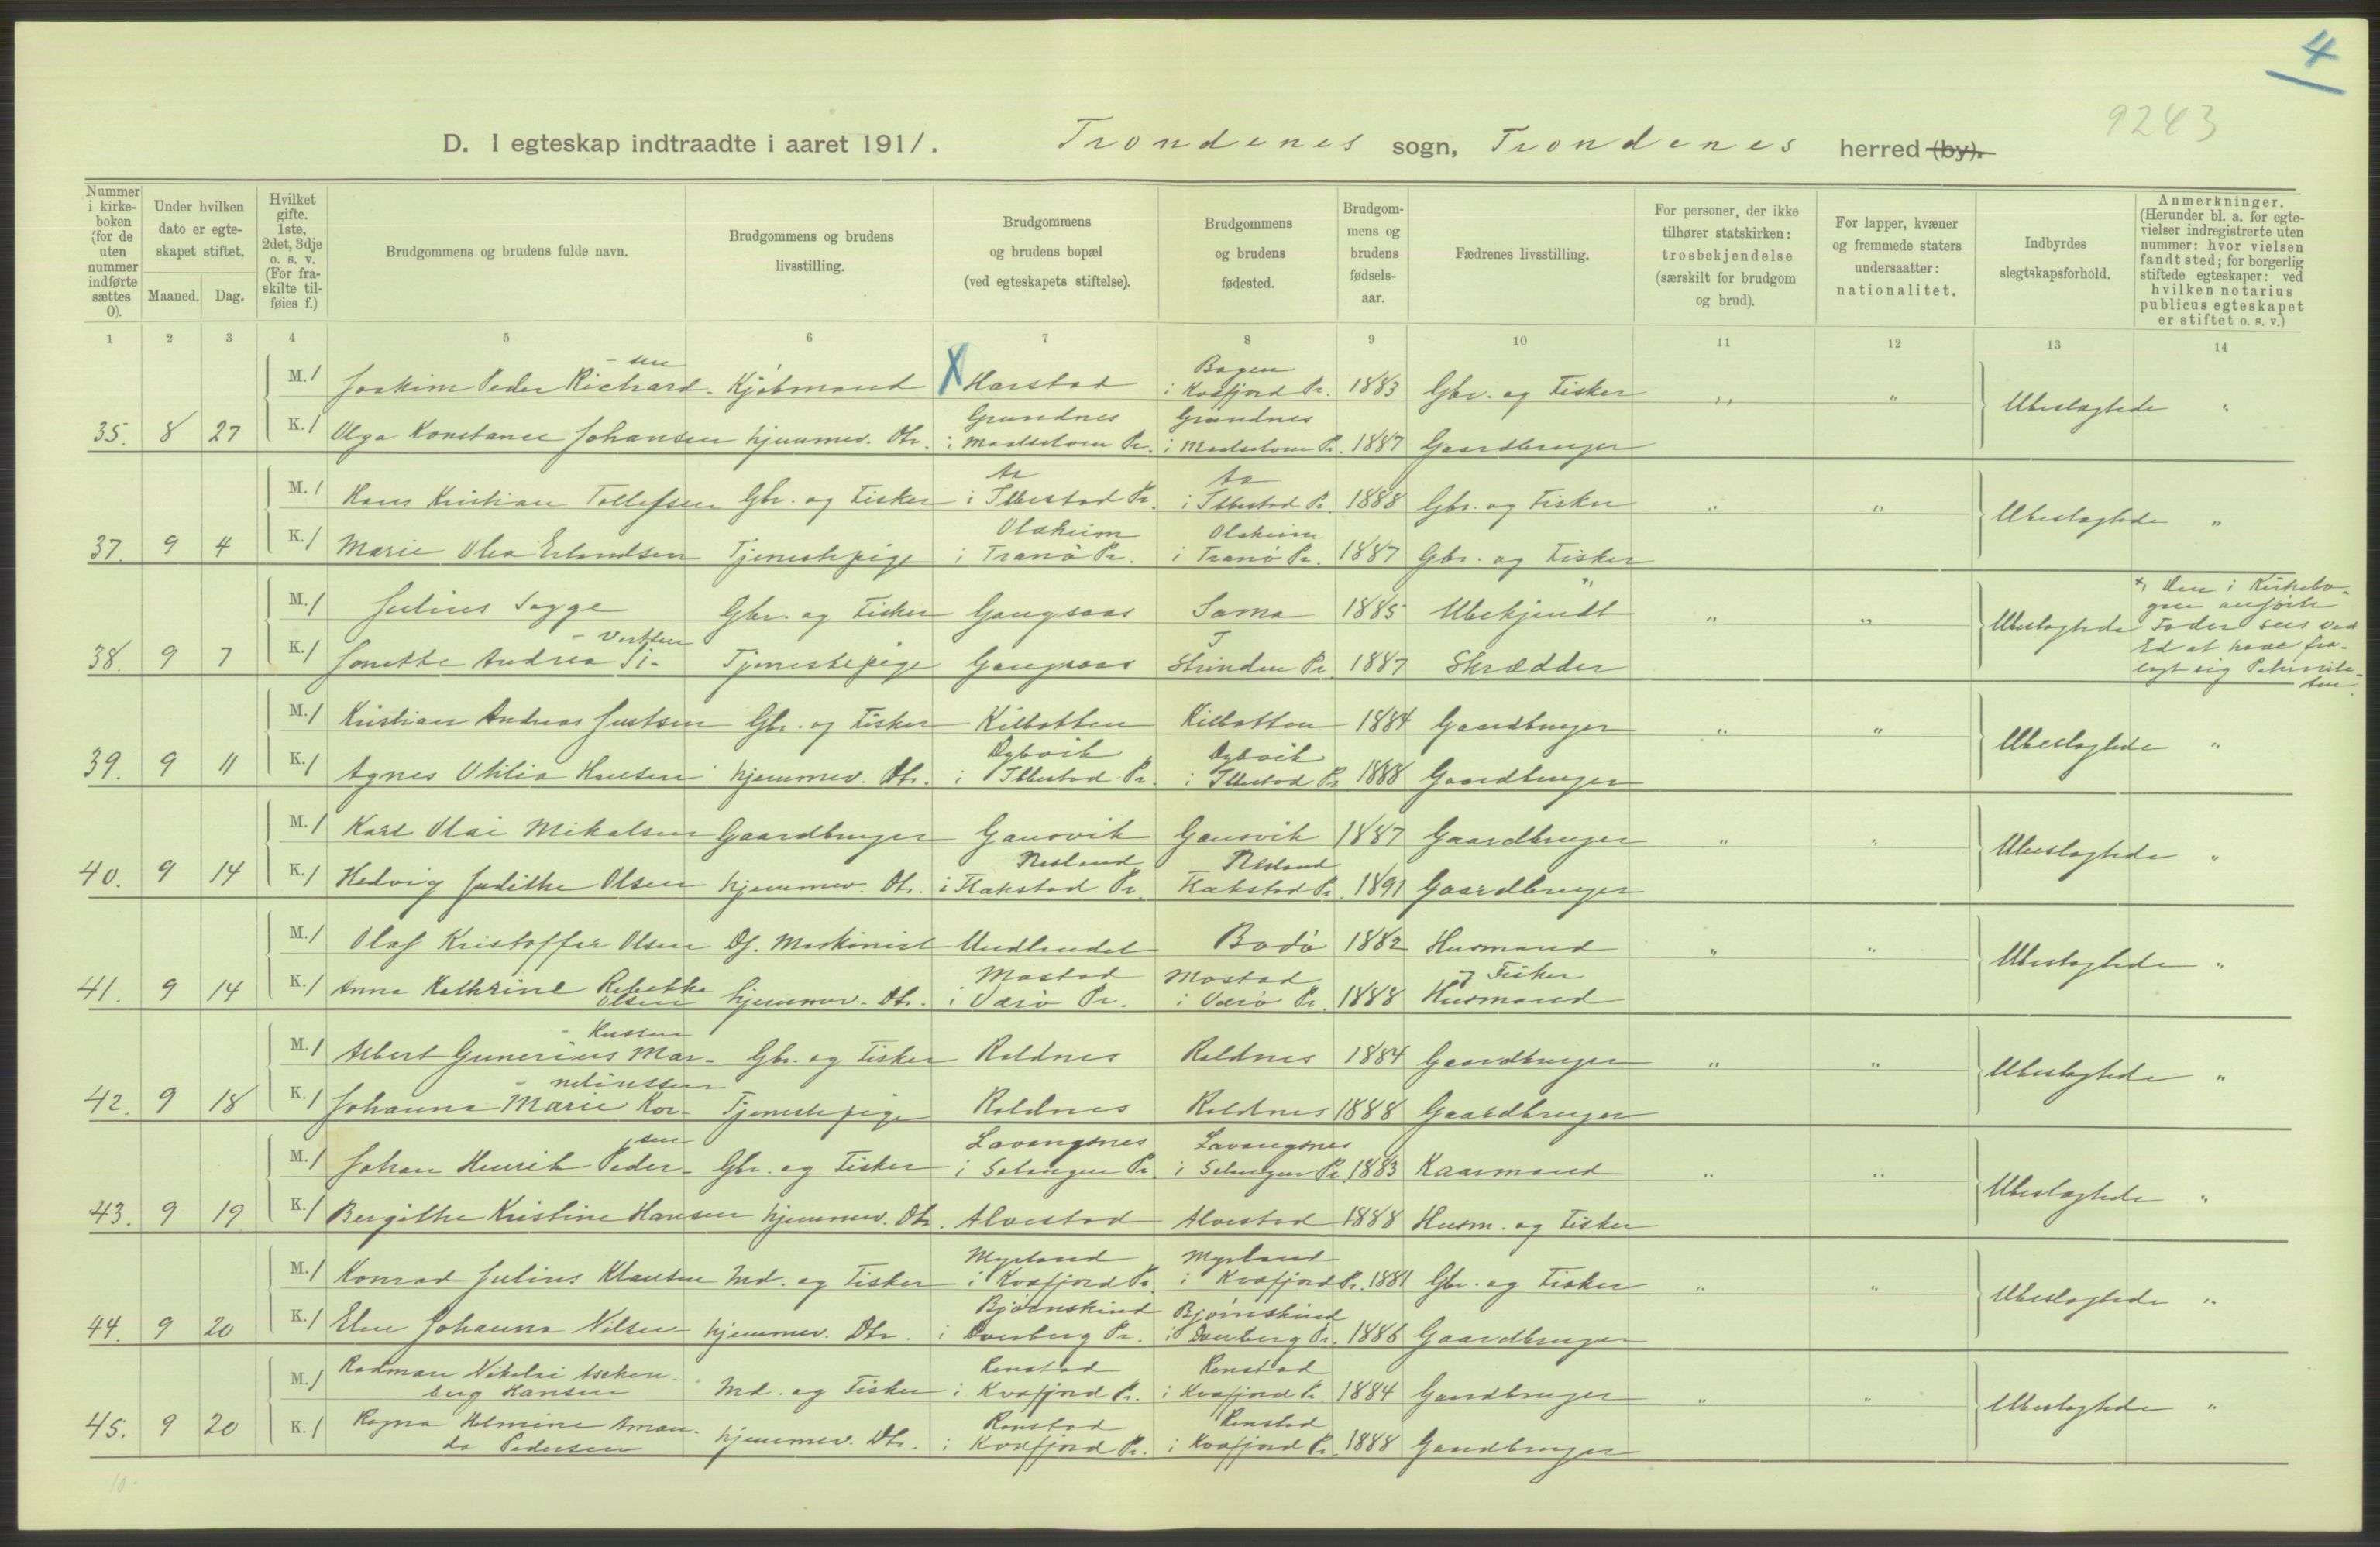 4
9243
D. I egteskap indtraadte i aaret 1911. Trondenes sogn, Trondenes herred (by).
Nummer i kirke-boken (for de uten nummer indførte sættes 0).
Under hvilken dato er egte-skapet stiftet.
Maaned. Dag.
Hvilket gifte. 1ste, 2det, 3dje o. s. v. (For fra-skilte til-føies f.)
Brudgommens og brudens fulde navn.
Brudgommens og brudens livsstilling.
Brudgommens og brudens bopæl (ved egteskapets stiftelse).
Brudgommens og brudens fødested.
Brudgom-mens og brudens fødsels-aar.
Fædrenes livsstilling.
For personer, der ikke tilhører statskirken: trosbekjendelse (særskilt for brudgom og brud).
For lapper, kvæner og fremmede staters undersaatter: nationalitet.
Indbyrdes slegtskapsforhold.
Anmerkninger. (Herunder bl. a. for egte-vielser indregistrerte uten nummer: hvor vielsen fandt sted; for borgerlig stiftede egteskaper: ved hvilken notarius publicus egteskapet er stiftet o. s. v.)
1 2 3 4 5 6 7 8 9 10 11 12 13 14
M. 1 Joakim Peder Richard-sen Kjøbmand X Harstad Bogen i Kvæfjord Pr. 1883 Gbr. og Fisker " " Ubeslægtede "
35. 8 27 K. 1 Olga Konstance Johansen hjemmev. Dtr. Grundnes i Maalselven Pr. Grundnes i Maalselven Pr. 1887 Gaardbruger
M. 1 Hans Kristian Tollefsen Gbr. og Fisker Aa i Ibbestad Pr. Aa i Ibbestad Pr. 1888 Gbr. og Fisker " " Ubeslægtede "
37. 9 4 K. 1 Marie Olea Erlandsen Tjenestepige Olaheim i Tranø Pr. Olaheim i Tranø Pr. 1887 Gbr. og Fisker
M. 1 Julius Sagge Gbr. og Fisker Gangsaas Sama 1885 Ubekjendt " " Ubeslægtede x, Den i Kirkebo-gen anførte Fader sees ved Ed at have fra-lagt sig Paternite-ten.
38. 9 7 K. 1 Jonette Andrea Si-vertsen Tjenestepige Gangsaas I Strinden Pr. 1887 Skrædder
M. 1 Kristian Andreas Justsen Gbr. og Fisker Kilbotten Kilbotten 1884 Gaardbruger " " Ubeslægtede "
39. 9 11 K. 1 Agnes Otilia Hansen hjemmev. Dtr. Dybvik i Ibbestad Pr. Dybvik i Ibbestad Pr. 1888 Gaardbruger
M. 1 Karl Olai Mikalsen Gaardbruger Gausvik Gausvik 1887 Gaardbruger " " Ubeslægtede "
40. 9 14 K. 1 Hedvig Judithe Olsen hjemmev. Dtr. Nesland i Flakstad Pr. Nesland Flakstad Pr. 1891 Gaardbruger
M. 1 Olaf Kristoffer Olsen Df. Maskinist Undlandet Bodø 1882 Husmand " " Ubeslægtede "
41. 9 14 K. 1 Anna Kathrine Rebekka Olsen hjemmev. Dtr. Mastad i Værø Pr. Mostad i Værø Pr. 1888 Husmand og Fisker
M. 1 Albert Gunerius Mar-kussen Gbr. og Fisker Roldnes Roldnes 1884 Gaardbruger " " Ubeslægtede "
42. 9 18 K. 1 Johanna Marie Kor-neliussen Tjenestepige Roldnes Roldnes 1888 Gaardbruger
M. 1 Johan Henrik Peder-sen Gbr. og Fisker Lavangsnes i Salangen Pr. Lavangsnes i Salangen Pr. 1883 Kaarmand " " Ubeslægtede "
43. 9 19 K. 1 Bergithe Kristine Hansen hjemmev. Dtr. Alvestad Alvestad 1888 Husm. og Fisker
M. 1 Konrad Julius Klausen Md. og Fisker Myrland i Kvæfjord Pr. Myrland i Kvæfjord Pr. 1881 Gbr. og Fisker " " Ubeslægtede "
44. 9 20 K. 1 Elen Johanna Nilsen hjemmev. Dtr. Bjørnskind i Dverberg Pr. Bjørnskind i Dverberg Pr. 1886 Gaardbruger
M. 1 Radman Nikolai Aschen-berg Hansen Md. og Fisker Renstad i Kvæfjord Pr. Renstad i Kvæfjord Pr. 1884 Gaardbruger " " Ubeslægtede "
45. 9 20 K. 1 Ragna Helmine Aman-da Pedersen hjemmev. Dtr. Renstad i Kvæfjord Pr. Renstad i Kvæfjord Pr. 1888 Gaardbruger
10